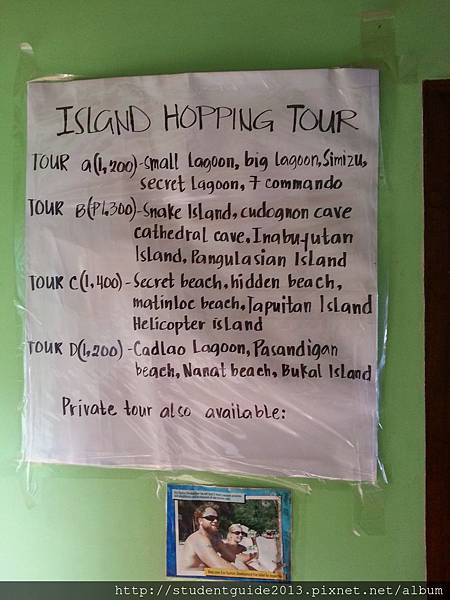 ISLAND HOPPING TOUR
TOUR a(1,200)-small lagoon, big lagoon, Simizu,
secret lagoon, 7 commando
TOUR B(P1,300)-Snake Island, cudognon cave
cathedral cave, Inabuyutan
Island, Pangulasian Island
TOUR C(1,400)-Secret beach, hidden beach,
matinloc beach, Tapuitan Island
Helicopter island
TOUR D(1,200)-Cadlao Lagoon, Pasandigan
beach, Nanat beach, Bukal Island
Private tour also available:
http://studentguide2013.pixnet.net/album